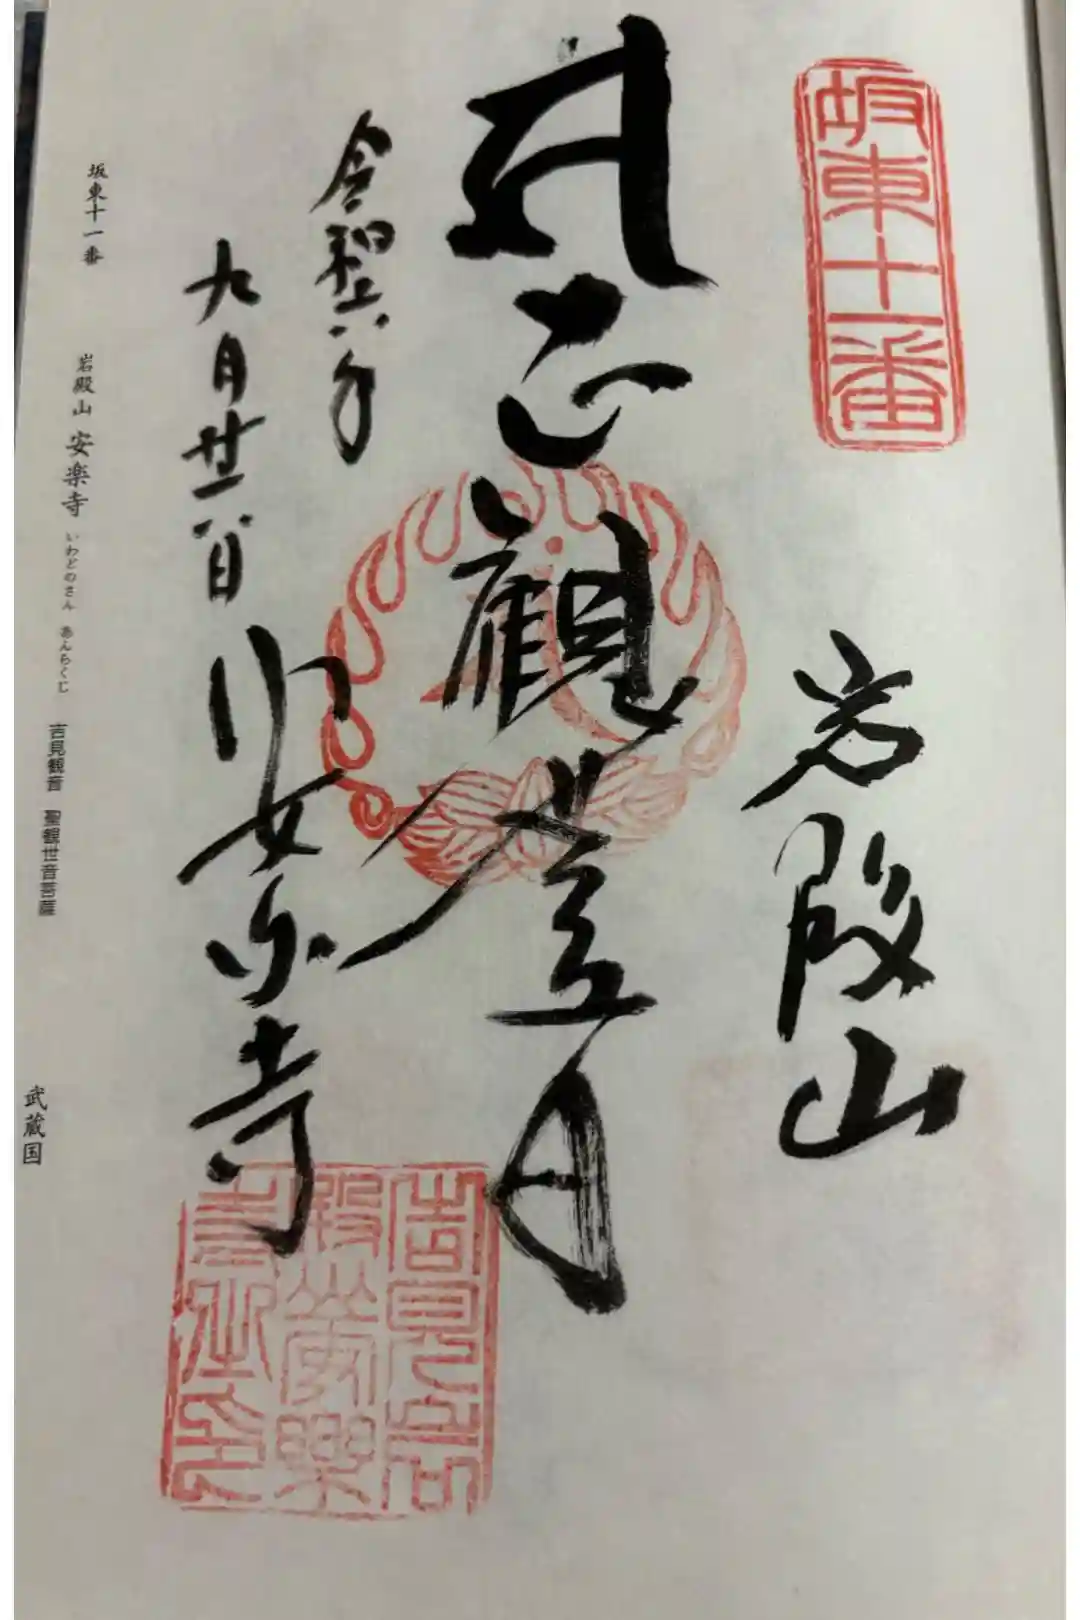 坂東十一番
岩殿山
正観世音
令和六年
九月廿八日
安楽寺
坂東十一番
岩殿山 安楽寺 いわどのさん あんらくじ
吉見観音 聖観世音菩薩
武蔵国